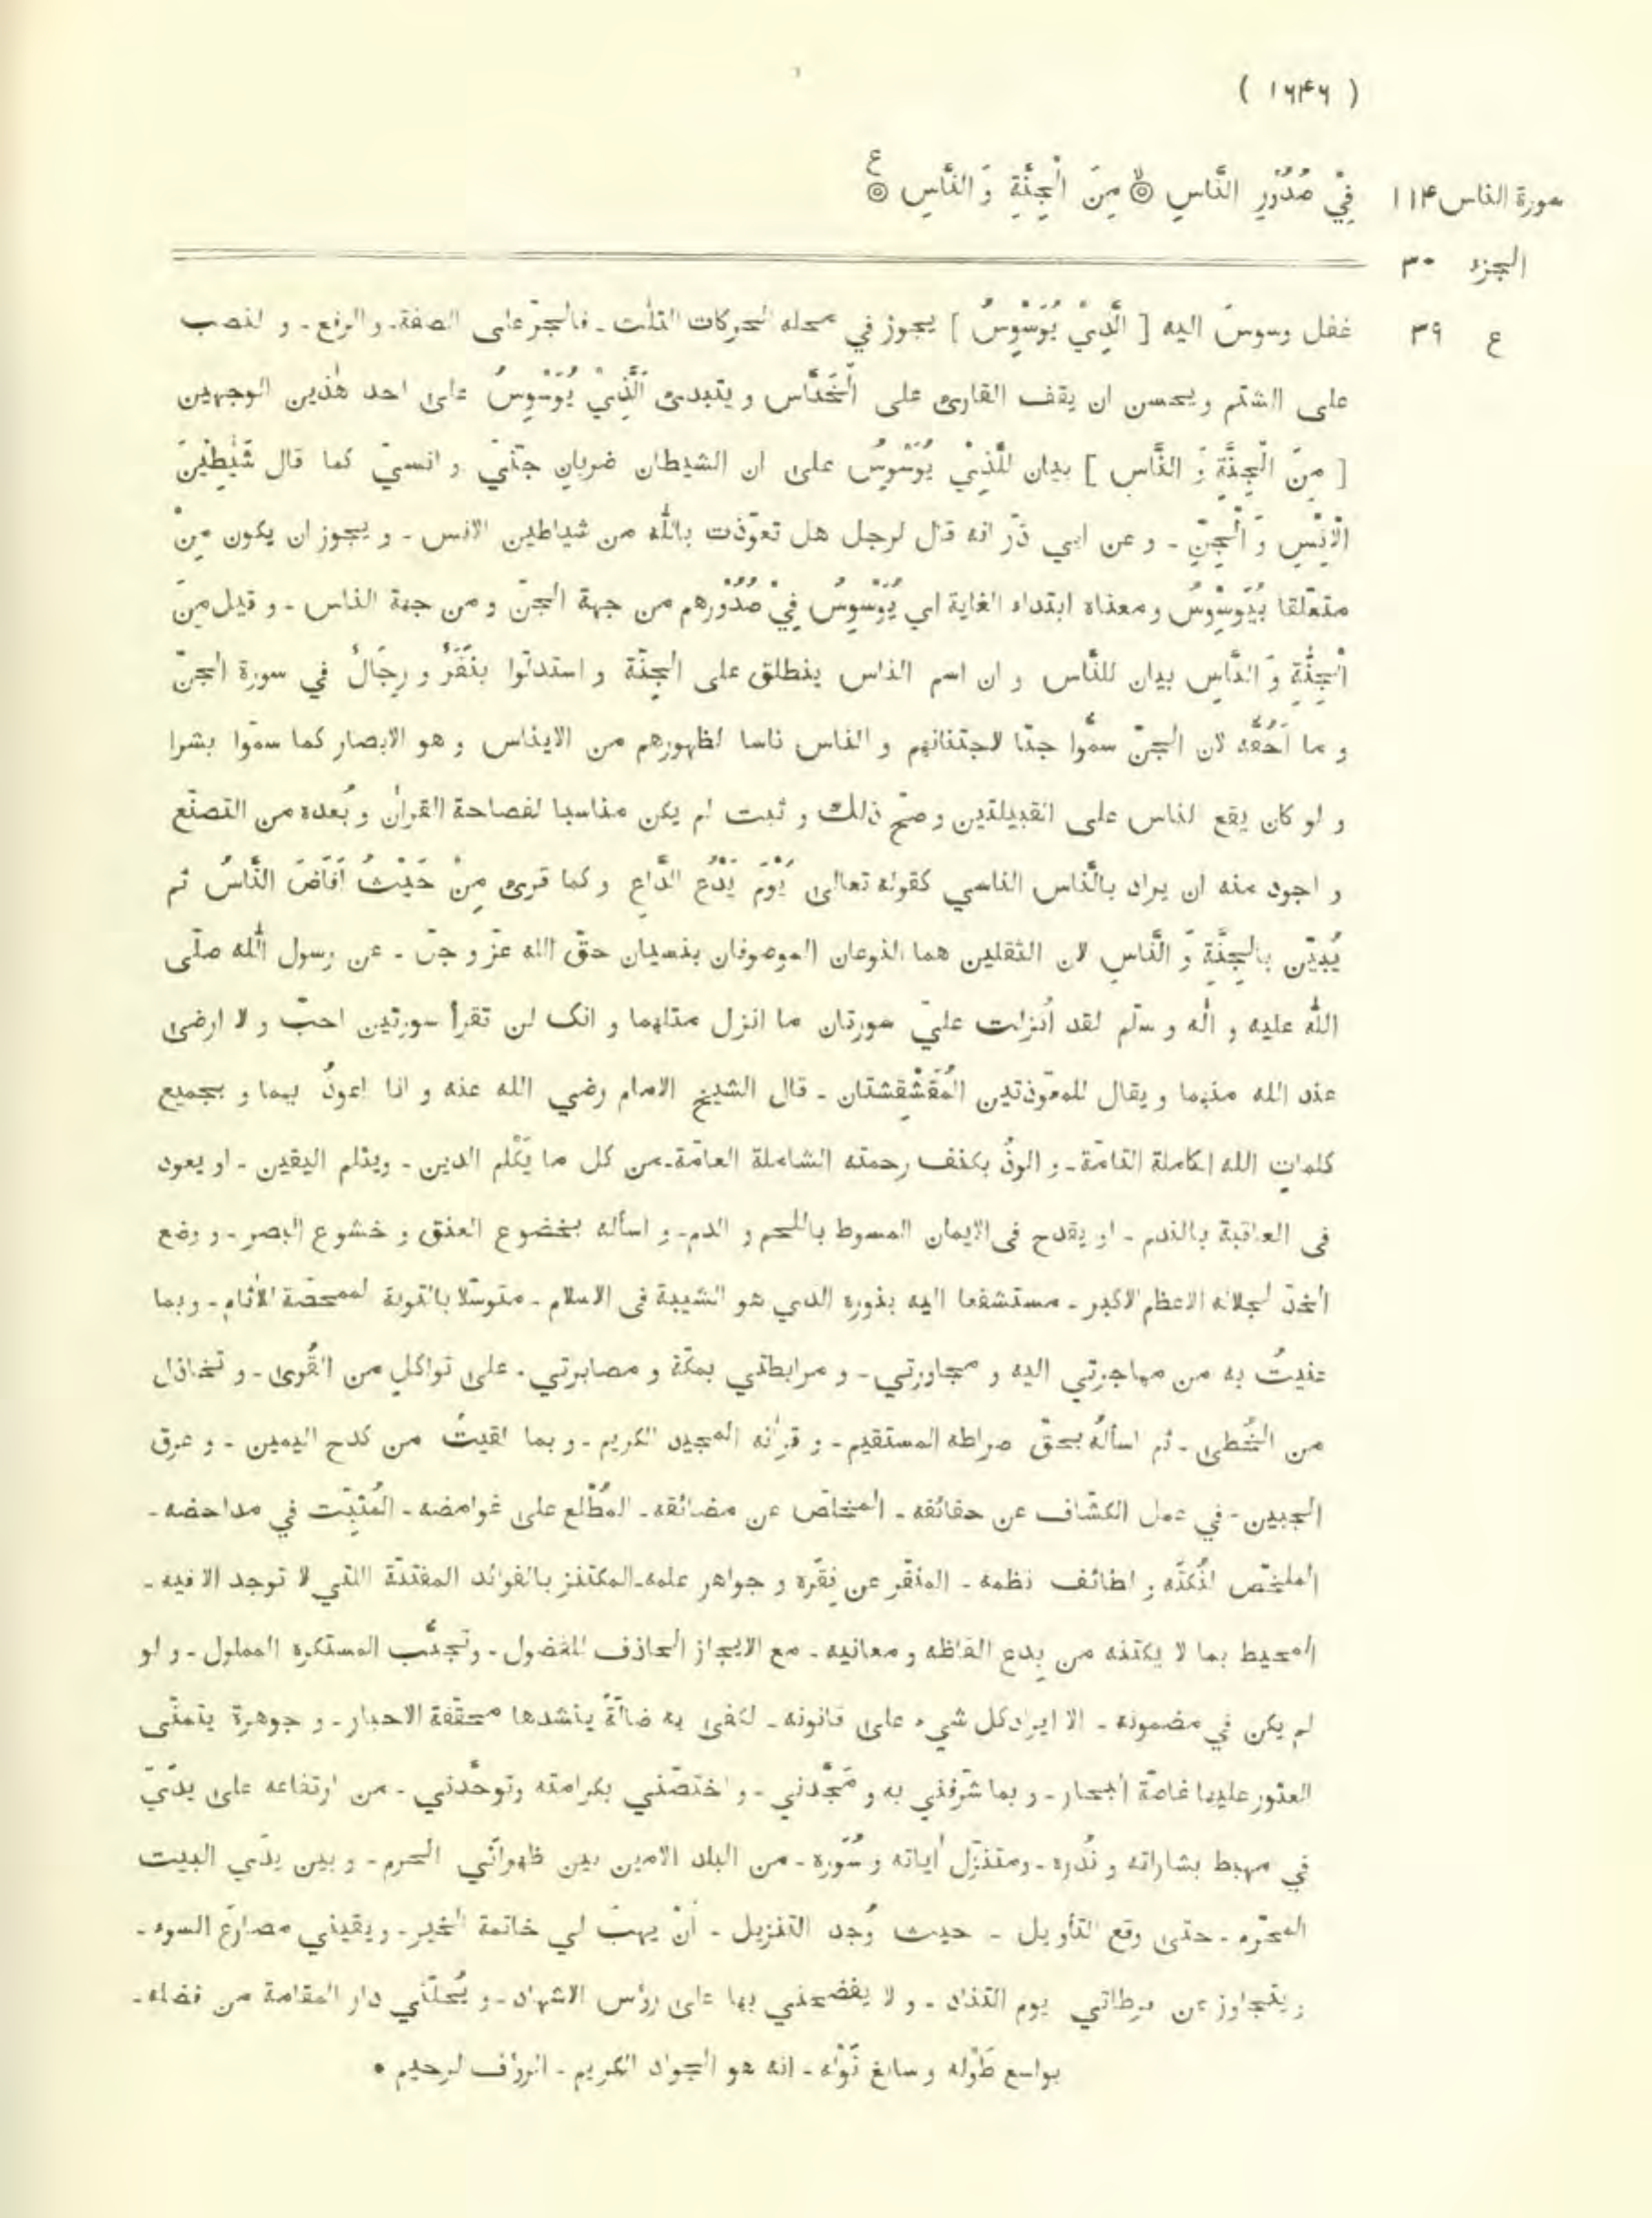 ( ۱۶۴۶ )
سورة الناس ۱۱۴
فِيْ صُدُوْرِ النَّاسِ ۞ مِنَ الْجِنَّةِ وَ النَّاسِ ۞ ع
الجزء ۳۰
ع ۳۹
غفل وسوس اليه [ الَّذِيْ يُوَسْوِسُ ] يجوز في محله الحركات الثلٰث ـ فالجرّ على الصفة ـ و الرفع ـ و النصب
على الشتم و يحسن ان يقف القارئ على الْخَنَّاس و يبتدئ الَّذِيْ يُوَسْوِسُ على احد هٰذين الوجهين
[ مِنَ الْجِنَّةِ وَ النَّاسِ ] بيان لِلَّذِيْ يُوَسْوِسُ على ان الشيطان ضربان جنّيّ و انسيّ كما قال شَيٰطِيْنَ
الْاِنْسِ وَ الْجِنِّ ـ و عن ابي ذرّ انه قال لرجل هل تعوّذت بالله من شياطين الانس ـ و يجوز ان يكون مِنْ
متعلقا بِيُوَسْوِسُ و معناه ابتداء الغاية اي يُوَسْوِسُ فِيْ صُدُوْرهم من جهة الجنّ و من جهة الناس ـ و قيل مِنَ
الْجِنَّةِ وَ النَّاسِ بيان للنّاس و ان اسم الناس ينطلق على الجِنّة و استدلّوا بنَفَرٌ و رِجَالٌ في سورة الجنّ
و ما اَحُقّه لان الجنّ سمّوا جنّا لاجتنانهم و الناس ناسا لظهورهم من الايناس و هو الابصار كما سمّوا بشرا
و لو كان يقع الناس على القبيلتين و صحّ ذلك و ثبت لم يكن مناسبا لفصاحة القراٰن و بُعده من التصنّع
و اجود منه ان يراد بالنّاس الناسي كقوله تعالى يَوْمَ يَدْعُ الدَّاعِ و كما قرئ مِنْ حَيْثُ اَفَاضَ النَّاسُ ثم
يُبيّن بالجِنَّةِ وَ النَّاسِ لان الثقلين هما النوعان الموصوفان بنسيان حقّ الله عزّ و جلّ ـ عن رسول الله صلّى
الله عليه و اٰله و سلّم لقد اُنزلت عليّ سورتان ما انزل مثلهما و انك لن تقرأ سورتين احبّ و لا ارضى
عند الله منهما و يقال للمعوّذتين المُقَشْقِشتان ـ قال الشيخ الامام رضي الله عنه و انا اعوذُ بهما و بجميع
كلمات الله الكاملة التامّة ـ و الوذُ بكنف رحمته الشاملة العامّة ـ من كل ما يَكْلم الدين ـ ويثلم اليقين ـ او يعود
فى العاقبة بالندم ـ او يقدح فى الايمان المسوط باللحم و الدم ـ و اسأله بخضوع العنق و خشوع البصر ـ و وضع
الخدّ لجلاله الاعظم الاكبر ـ مستشفعا اليه بنوره الذي هو الشيبة فى الاسلام ـ متوسّلا بالتوبة الممحّصة للاٰثام ـ وبما
عنيتُ به من مهاجرتي اليه و مجاورتي ـ و مرابطتي بمكّة و مصابرتي ـ على تواكلٍ من القُوى ـ و تخاذل
من الخُطى ـ ثم اسألُه بحقّ صراطه المستقيم ـ و قراٰنه المجيد الكريم ـ و بما لقيتُ من كدح اليمين ـ و عرق
الجبين ـ في عمل الكشّاف عن حقائقه ـ المخلّص عن مضائقه ـ المُطّلع على غوامضه ـ المُثبّت في مداحضه ـ
الملخّص لنُكَته و لطائف نظمه ـ المنقّر عن فِقَره و جواهر علمه ـ المكتنز بالفوائد المفتنّة التي لا توجد الا فيه ـ
المحيط بما لا يكتنه من بِدع الفاظه و معانيه ـ مع الايجاز الحاذف للفضول ـ وتجنُّب المستكره المملول ـ و لو
لم يكن في مضمونه ـ الا ايراد كل شيء على قانونه ـ لكفى به ضالّةً ينشدها محقّقة الاحبار ـ و جوهرة يتمنّى
العثور عليها غاصّة البحار ـ و بما شرّفني به و مَجّدني ـ و اختصّني بكرامته وتوحّدني ـ من ارتفاعه على يديّ
في مهبط بشاراته و نُذره ـ ومتنزّل اٰياته و سُوَره ـ من البلد الامين بين ظهراني الحرم ـ و بين يدي البيت
المحرّم ـ حتى وقع التأويل ـ حيث وُجد التنزيل ـ اَنْ يهبَ لي خاتمة الخير ـ ويقيني مصارعَ السوء ـ
و يتجاوز عن فرطاتي يوم التناد ـ و لا يفضحني بها على رؤس الاشهاد ـ و يُحلّني دار المقامة من فضله ـ
بواسع طَوْله و سابغ نَوْله ـ انه هو الجواد الكريم ـ الرؤف الرحيم •